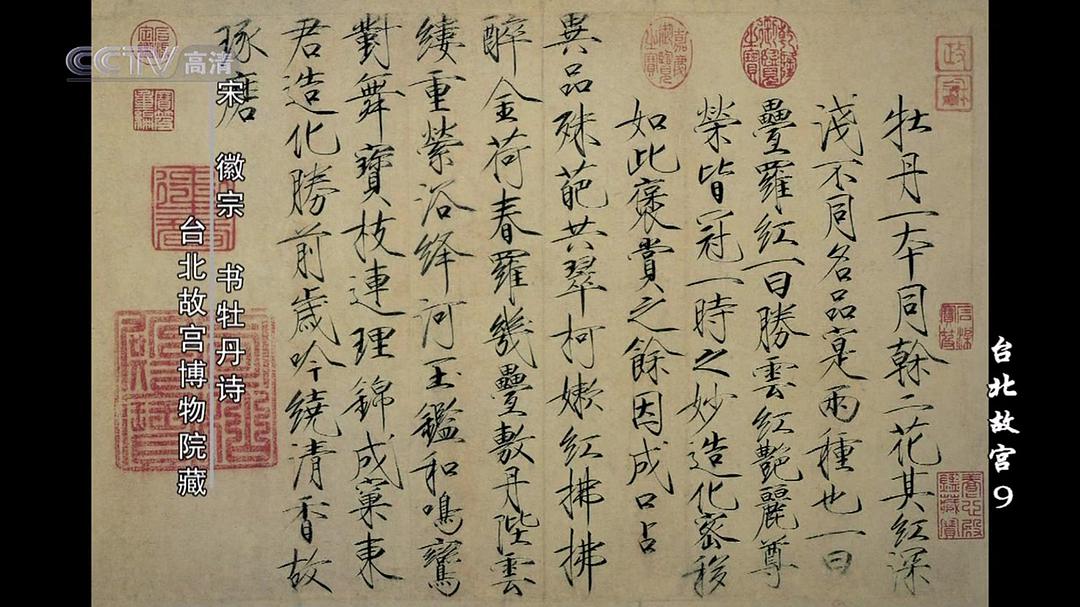 台北故宫9
牡丹一本同榦二花其紅深
淺不同名品寔兩種也一曰
疊羅紅一曰勝雲紅艷麗尊
榮皆冠一時之妙造化密移
如此褒賞之餘因成口占
異品殊葩共翠柯嫩紅拂拂
醉金荷春羅幾疊敷丹陛雲
縷重縈浴絳河玉鑑和鳴鸞
對舞寶枝連理錦成窠東
君造化勝前歲吟繞清香故
琢磨
乾隆御覽之寶
嘉慶御覽之寶
CCTV高清
宋 徽宗 书牡丹诗
台北故宫博物院藏